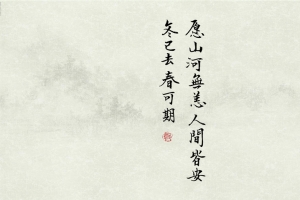 愿山河無恙人間皆安
冬已去春可期